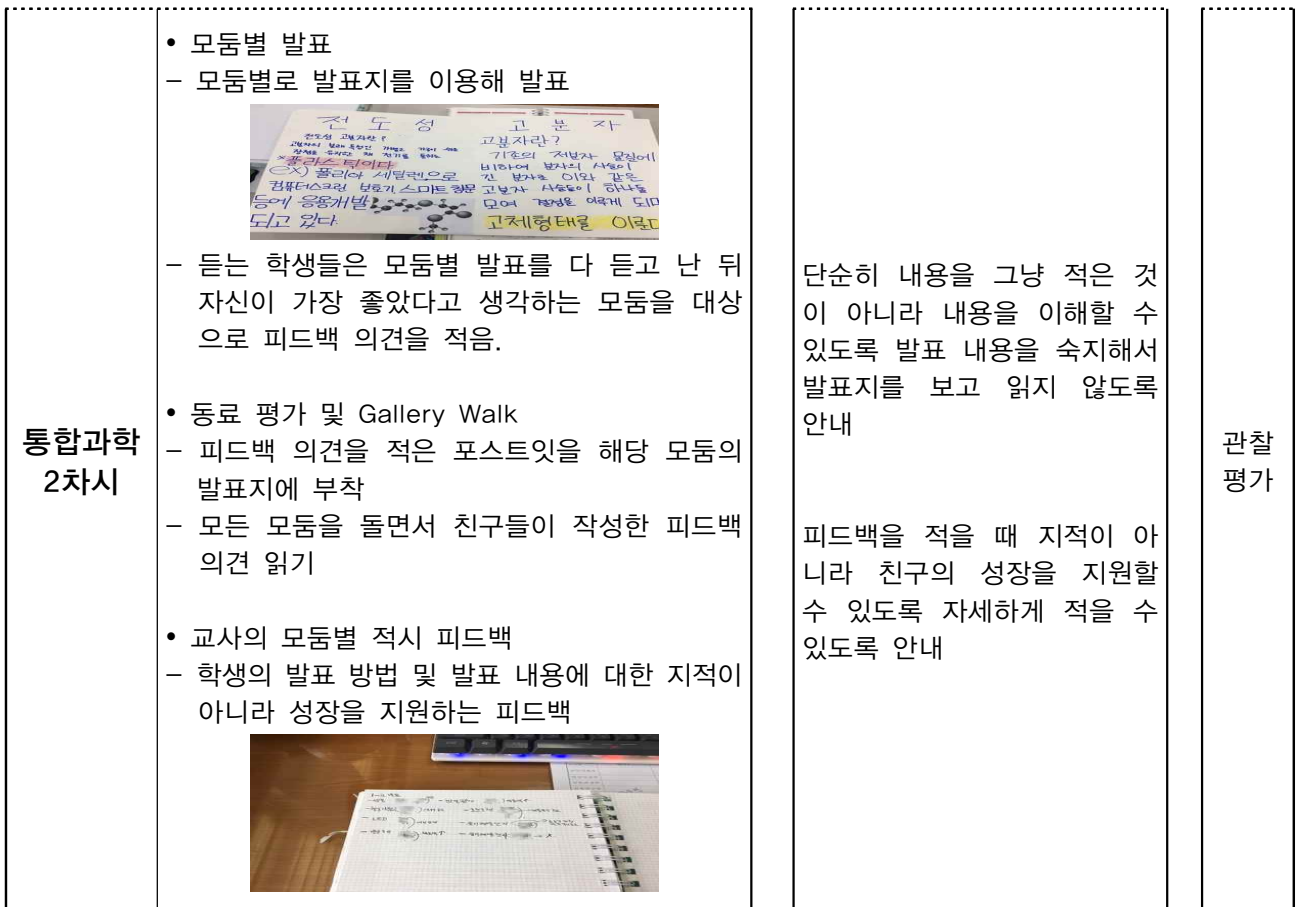 • 모둠별 발표
– 모둠별로 발표지를 이용해 발표
전도성 고분자
전도성 고분자란?
플라스틱이다
ex) 폴리아 세틸렌으로
컴퓨터스크린 보호기, 스마트 창문
등에 응용개발
되고 있다
고분자란?
기존의 저분자 물질에
비하여 분자의 사슬이
긴 분자로 이와 같은
고분자 사슬들이 하나둘
모여
고체형태를 이룬다
– 듣는 학생들은 모둠별 발표를 다 듣고 난 뒤
자신이 가장 좋았다고 생각하는 모둠을 대상
으로 피드백 의견을 적음.
통합과학
2차시
• 동료 평가 및 Gallery Walk
– 피드백 의견을 적은 포스트잇을 해당 모둠의
발표지에 부착
– 모든 모둠을 돌면서 친구들이 작성한 피드백
의견 읽기
• 교사의 모둠별 적시 피드백
– 학생의 발표 방법 및 발표 내용에 대한 지적이
아니라 성장을 지원하는 피드백
단순히 내용을 그냥 적은 것
이 아니라 내용을 이해할 수
있도록 발표 내용을 숙지해서
발표지를 보고 읽지 않도록
안내
피드백을 적을 때 지적이 아
니라 친구의 성장을 지원할
수 있도록 자세하게 적을 수
있도록 안내
관찰
평가